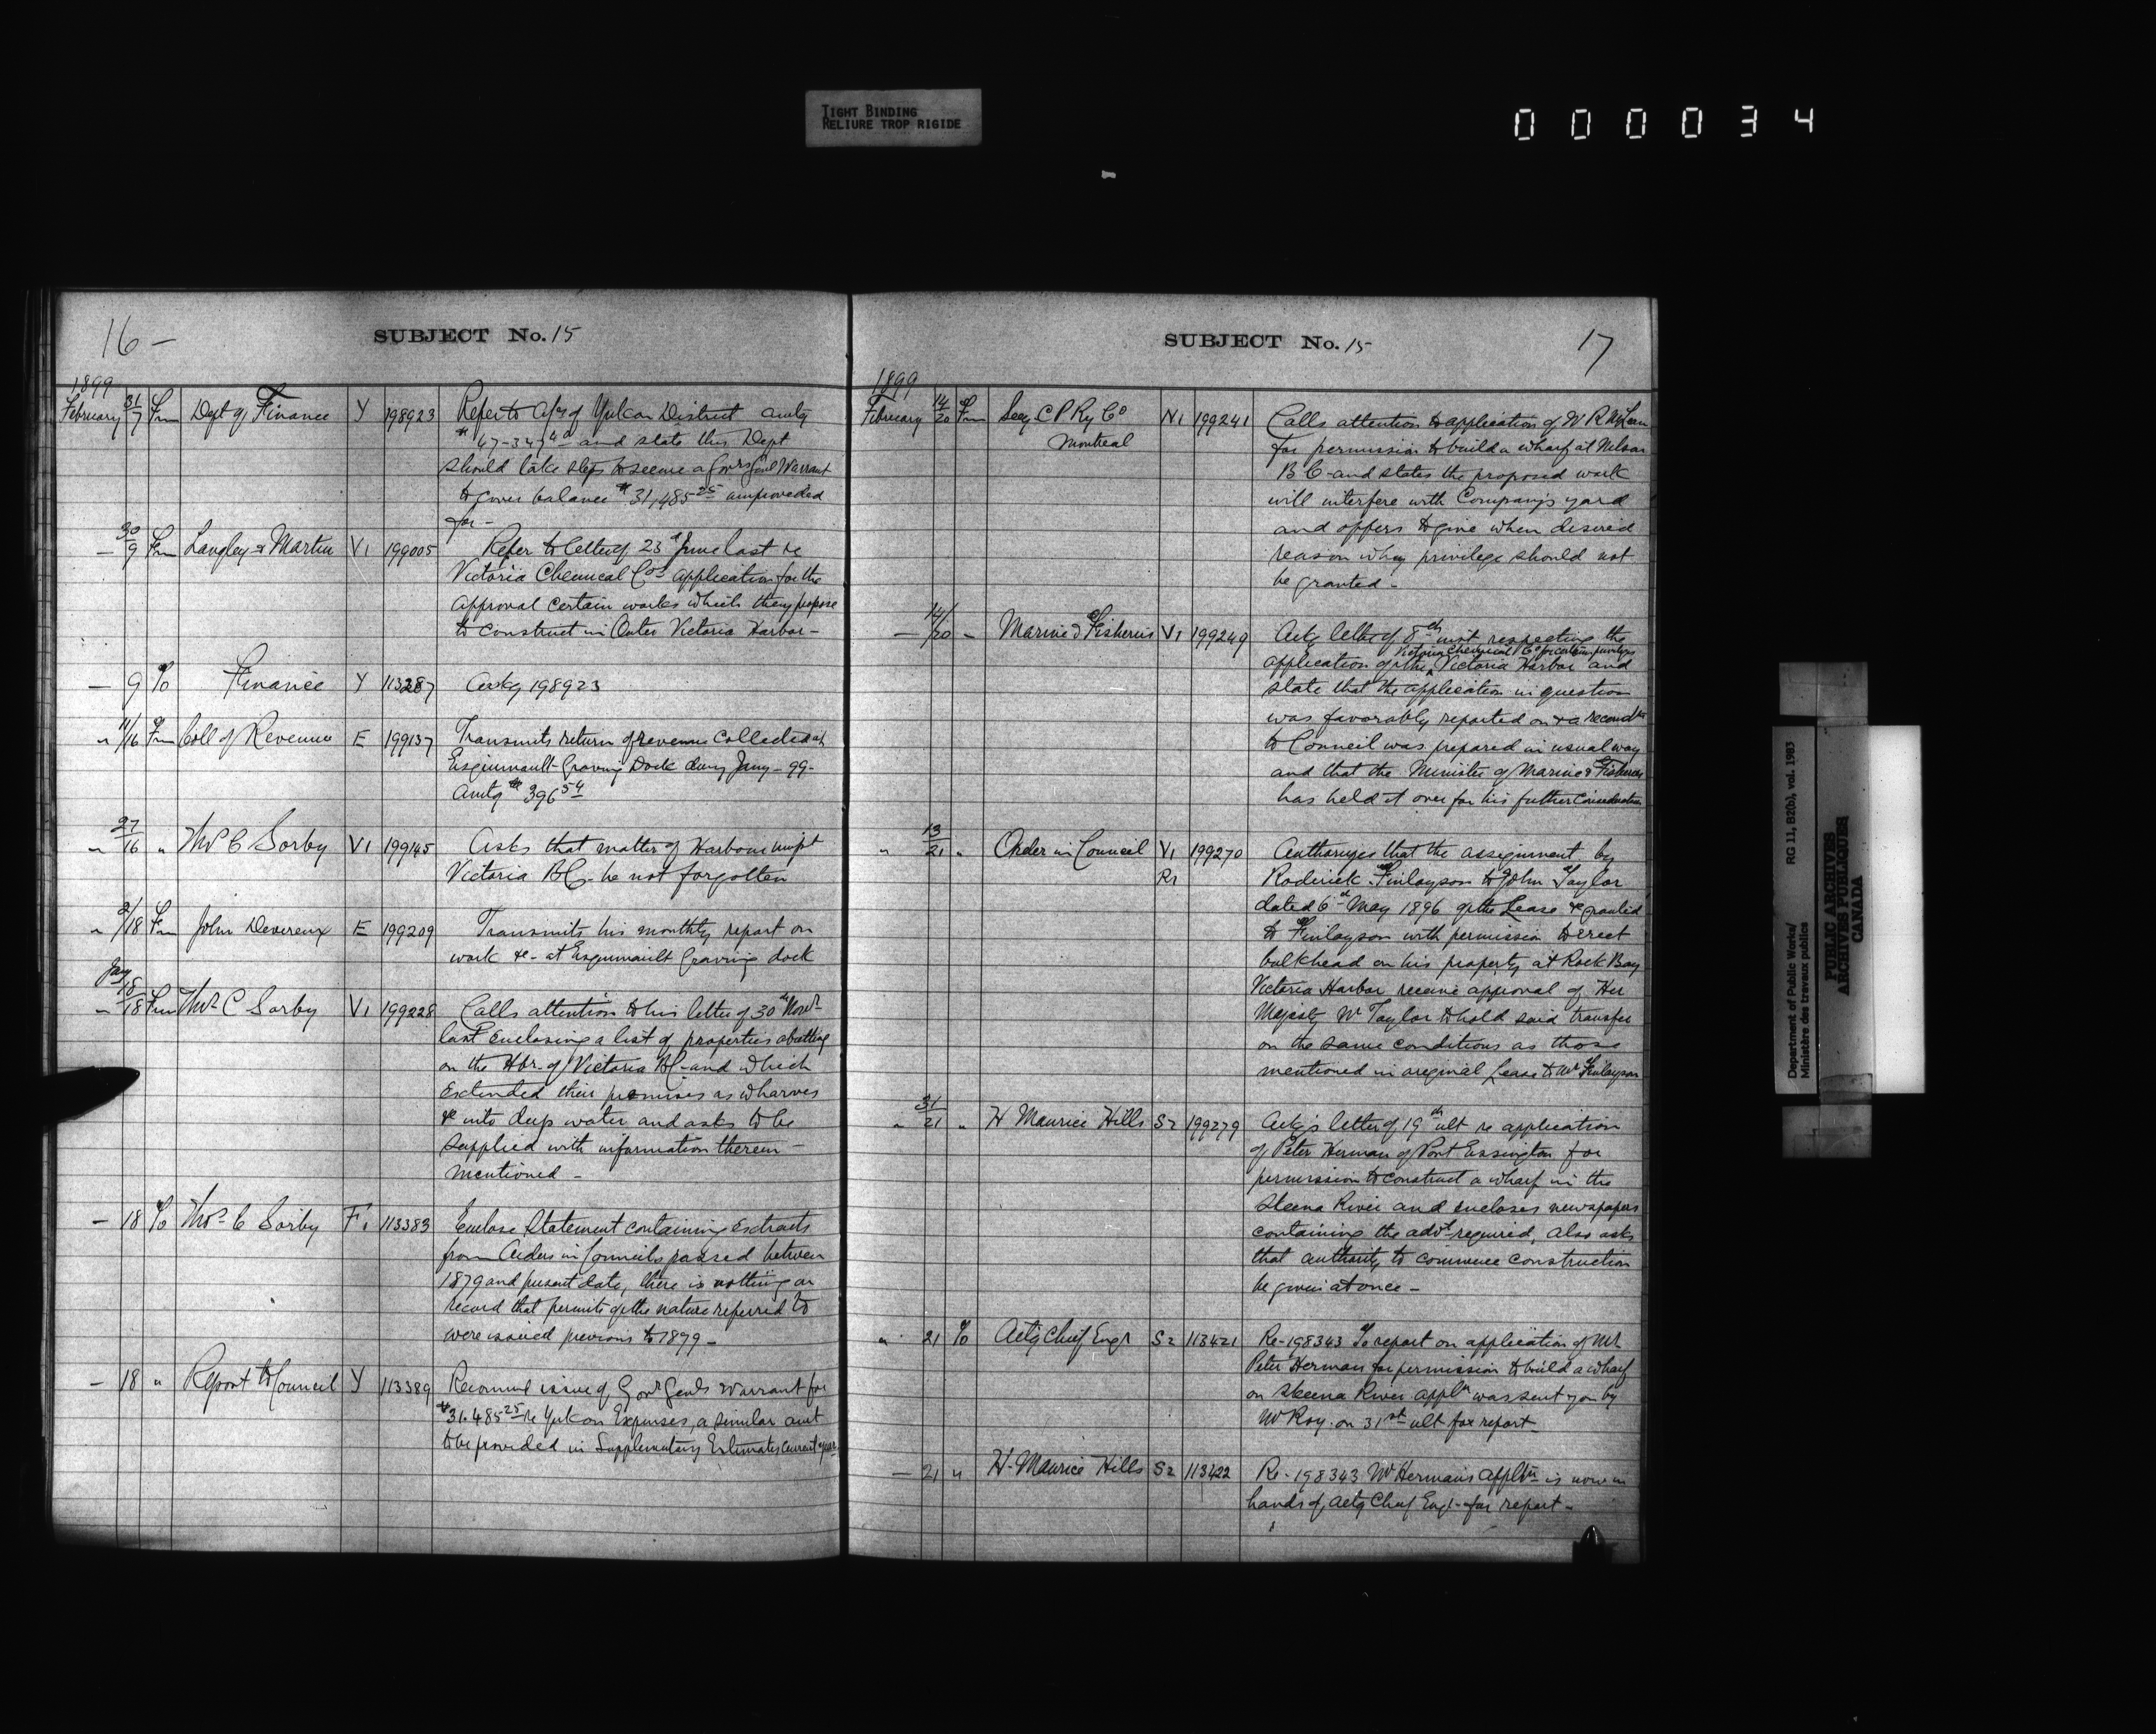 TIGHT BINDING
RELIURE TROP RIGIDE
000034
16 -
SUBJECT No. 15
1899
February 31/7 Frm Dept of Finance Y 198923 Refer to a/cs of Yukon District amtg
$ 47-347 and state this Dept
should take steps to secure a Govr Genl Warrant
to cover balance $ 31,485 25 unprovided
for -
— 30/9 Frm Langley & Martin V1 199005 Refer to letter of 23d June last re
Victoria Chemical Cos application for the
approval certain works which they propose
to construct in Outer Victoria Harbor -
— 9 To Finance Y 113287 Ackg 198923
" 11/16 Frm Coll of Revenue E 199137 Transmits return of revenue collected at
Esquimault Graving Dock during Jany - 99 -
Amtg $ 396 54
" 27/16 " Thos C Sorby V1 199145 Asks that matter of Harbour impt
Victoria BC. be not forgotten
" 2/18 Frm John Devereux E 199209 Transmits his monthly report on
work &c - at Esquimault Graving dock
Jany
— 18/18 Frm Thos C Sorby V1 199228 Calls attention to his letter of 30th Novr
last enclosing a list of properties abutting
on the Hbr. of Victoria BC - and which
extended their premises as wharves
&c into deep water and asks to be
supplied with information therein -
mentioned -
— 18 To Thos C Sorby F1 113383 Enclose Statement containing extracts
from Orders in Councils passed between
1879 and present date, there is nothing on
record that permits of the nature referred to
were issued previous to 1879 -
— 18 " Report to Council Y 113389 Recommd issue of Govr Genls warrant for
$31.485 25 re Yukon Expenses, a similar amt
to be provided in Supplementary Estimates current year
SUBJECT No. 15
17
1899
February 14/20 Frm Secy C P Ry Co N1 199241 Calls attention to application of W R McLean
Montreal for permission to build a wharf at Nelson
B C - and states the proposed work
will interfere with Company's yard
and offers to give when desired
reason why privilege should not
be granted -
— 14/20 - Marine & Fisheries V1 199249 Ackg letter of 8th inst respecting the
Victoria Chemical Co for certain privileges
application of the Victoria Harbor and
state that the application in question
was favorably reported on & a recomdtn
to Council was prepared in usual way
and that the Minister of Marine & Fisheries
has held it over for his further consideration
" 13/21 " Order in Council V1 199270 Authorizes that the assignment by
R1 Roderick Finlayson to John Taylor
dated 6th May 1896 of the Lease &c granted
to Finlayson with permission to erect
bulkhead on his property at Rock Bay
Victoria Harbor receive approval of Her
Majesty Mr Taylor to hold said transfer
on the same conditions as those
mentioned in original Lease to Mr Finlayson
" 31/21 " H Maurice Hills S2 199279 Ackg's letter of 19th ult re application
of Peter Herman of Port Essington for
permission to construct a wharf in the
Skeena River and encloses newspapers
containing the advt required, also asks
that authority to commence construction
be given at once -
" 21 To Actg Chief Engr S2 113421 Re-198343 To report on application of Mr
Peter Herman for permission to build a wharf
on Skeena River appln was sent you by
Mr Roy. on 31st ult for report -
— 21 " H. Maurice Hills S2 113422 Re-198343 Mr Herman's appltn is now in
hands of Actg Chief Engr for report -
Department of Public Works/ RG 11, B2(b), vol. 1983
Ministère des travaux publics
PUBLIC ARCHIVES
ARCHIVES PUBLIQUES
CANADA